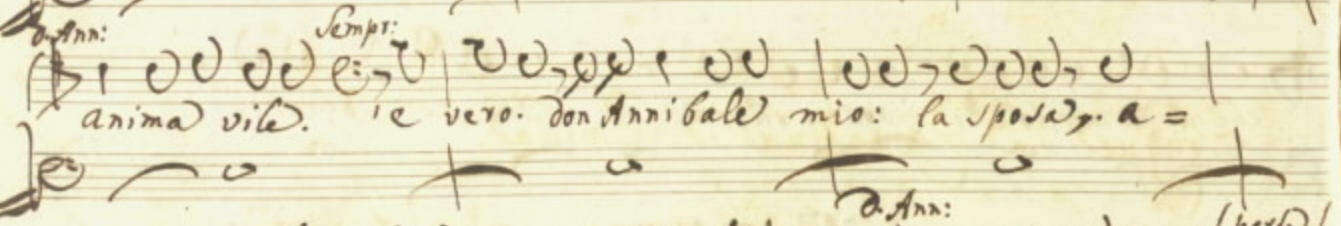 d. Ann: Sempr:
anima vile. 'e vero. don Annibale mio: la sposa, a=
d. Ann: